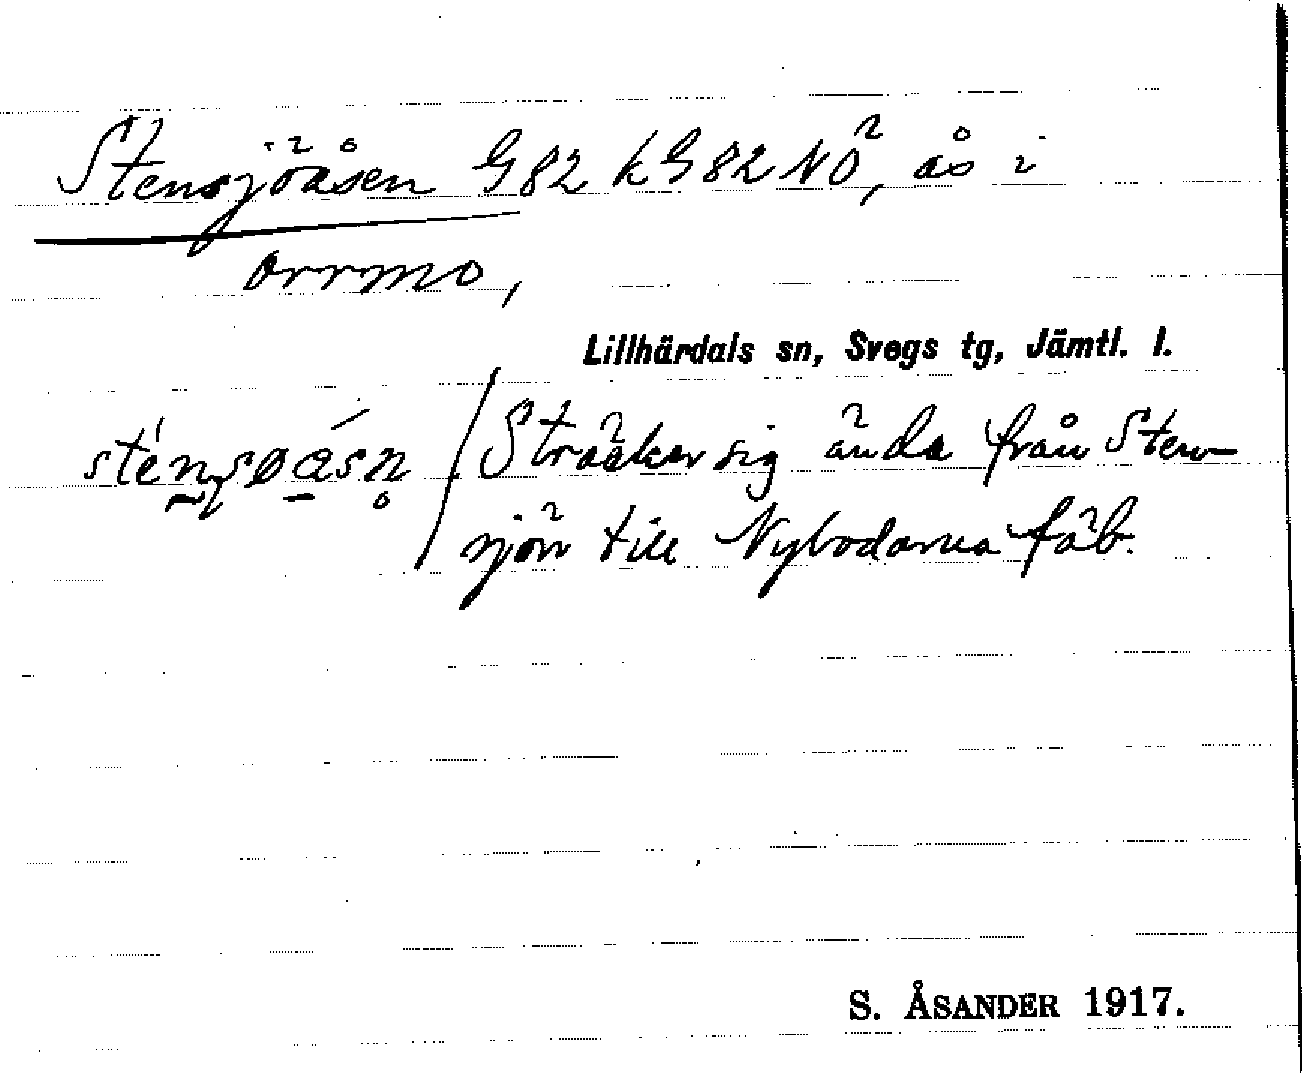 Stensjöåsen G82 kG82NÖ, ås i
Orrmo,
Lillhärdals sn, Svegs tg, Jämtl. l.
sténsøásn / Sträcker sig ända från Sten-
sjön till Nybodarna fäb.
S. ÅSANDER 1917.